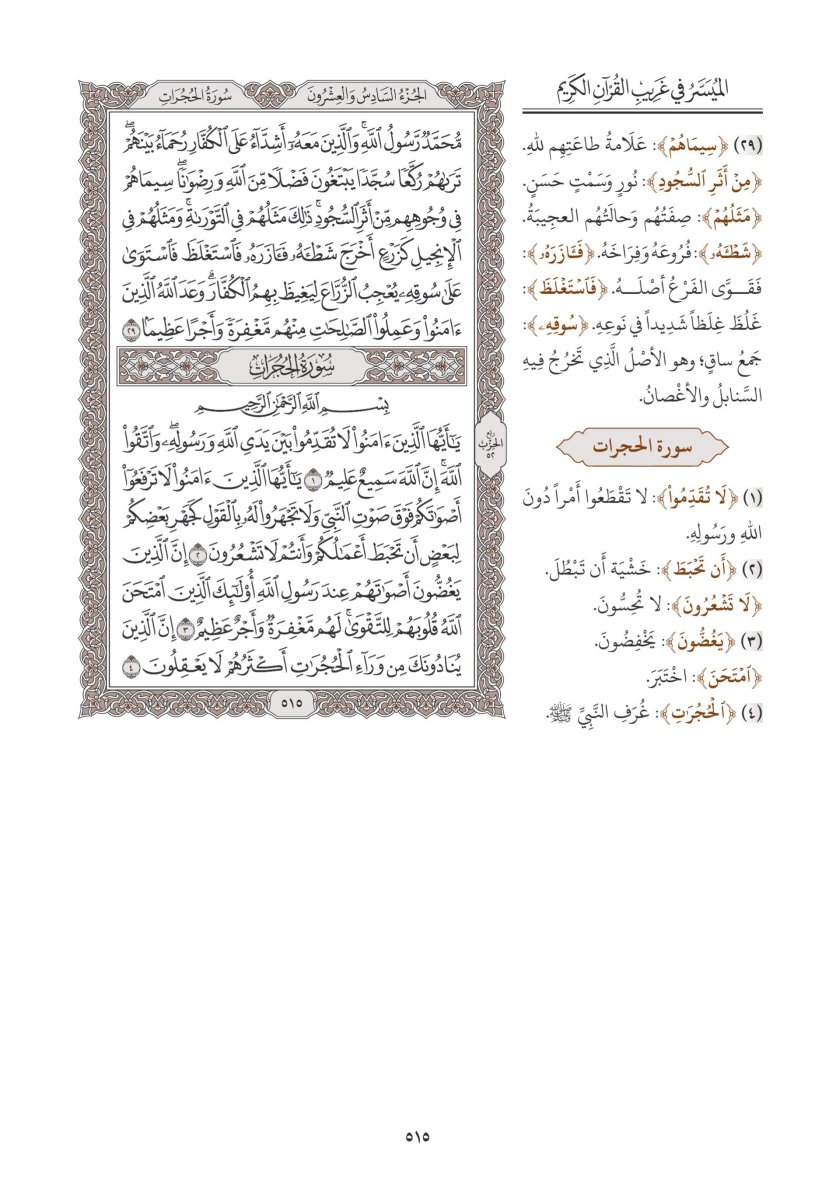 الميَسَّرُ في غَرِيبِ القُرْآنِ الكَرِيم
سُورَةُ الحُجُرَاتِ
الجُزْءُ السَّادِسُ وَالعِشْرُونَ
مُّحَمَّدٌ رَّسُولُ ٱللَّهِۚ وَٱلَّذِينَ مَعَهُۥٓ أَشِدَّآءُ عَلَى ٱلۡكُفَّارِ رُحَمَآءُ بَيۡنَهُمۡۖ
تَرَىٰهُمۡ رُكَّعٗا سُجَّدٗا يَبۡتَغُونَ فَضۡلٗا مِّنَ ٱللَّهِ وَرِضۡوَٰنٗاۖ سِيمَاهُمۡ
فِي وُجُوهِهِم مِّنۡ أَثَرِ ٱلسُّجُودِۚ ذَٰلِكَ مَثَلُهُمۡ فِي ٱلتَّوۡرَىٰةِۚ وَمَثَلُهُمۡ فِي
ٱلۡإِنجِيلِ كَزَرۡعٍ أَخۡرَجَ شَطۡـَٔهُۥ فَـَٔازَرَهُۥ فَٱسۡتَغۡلَظَ فَٱسۡتَوَىٰ
عَلَىٰ سُوقِهِۦ يُعۡجِبُ ٱلزُّرَّاعَ لِيَغِيظَ بِهِمُ ٱلۡكُفَّارَۗ وَعَدَ ٱللَّهُ ٱلَّذِينَ
ءَامَنُواْ وَعَمِلُواْ ٱلصَّٰلِحَٰتِ مِنۡهُم مَّغۡفِرَةٗ وَأَجۡرًا عَظِيمَۢا ٢٩
سُورَةُ الحُجُرَاتِ
بِسۡمِ ٱللَّهِ ٱلرَّحۡمَٰنِ ٱلرَّحِيمِ
يَٰٓأَيُّهَا ٱلَّذِينَ ءَامَنُواْ لَا تُقَدِّمُواْ بَيۡنَ يَدَيِ ٱللَّهِ وَرَسُولِهِۦۖ وَٱتَّقُواْ
ٱللَّهَۚ إِنَّ ٱللَّهَ سَمِيعٌ عَلِيمٞ ١ يَٰٓأَيُّهَا ٱلَّذِينَ ءَامَنُواْ لَا تَرۡفَعُوٓاْ
أَصۡوَٰتَكُمۡ فَوۡقَ صَوۡتِ ٱلنَّبِيِّ وَلَا تَجۡهَرُواْ لَهُۥ بِٱلۡقَوۡلِ كَجَهۡرِ بَعۡضِكُمۡ
لِبَعۡضٍ أَن تَحۡبَطَ أَعۡمَٰلُكُمۡ وَأَنتُمۡ لَا تَشۡعُرُونَ ٢ إِنَّ ٱلَّذِينَ
يَغُضُّونَ أَصۡوَٰتَهُمۡ عِندَ رَسُولِ ٱللَّهِ أُوْلَٰٓئِكَ ٱلَّذِينَ ٱمۡتَحَنَ
ٱللَّهُ قُلُوبَهُمۡ لِلتَّقۡوَىٰۚ لَهُم مَّغۡفِرَةٞ وَأَجۡرٌ عَظِيمٌ ٣ إِنَّ ٱلَّذِينَ
يُنَادُونَكَ مِن وَرَآءِ ٱلۡحُجُرَٰتِ أَكۡثَرُهُمۡ لَا يَعۡقِلُونَ ٤
ربع
الحزب
٥٢
٥١٥
(٢٩) ﴿سِيمَاهُمۡ﴾: عَلَامةُ طاعَتِهِم للهِ.
﴿مِنۡ أَثَرِ ٱلسُّجُودِ﴾: نُورٍ وَسَمْتٍ حَسَنٍ.
﴿مَثَلُهُمۡ﴾: صِفَتُهُم وَحالَتُهُم العجِيبَةُ.
﴿شَطۡـَٔهُۥ﴾: فُرُوعَهُ وَفِرَاخَهُ. ﴿فَـَٔازَرَهُۥ﴾:
فَقَــوَّى الفَرْعُ أصلَــهُ. ﴿فَٱسۡتَغۡلَظَ﴾:
غَلُظَ غِلَظاً شَدِيداً في نَوعِهِ. ﴿سُوقِهِۦ﴾:
جَمعُ ساقٍ؛ وهو الأصْلُ الَّذِي تَخرُجُ فِيهِ
السَّنابلُ والأغْصانُ.
سورة الحجرات
(١) ﴿لَا تُقَدِّمُواْ﴾: لا تَقْطَعُوا أَمْراً دُونَ
اللهِ ورَسُولِهِ.
(٢) ﴿أَن تَحۡبَطَ﴾: خَشْيَة أن تَبْطُلَ.
﴿لَا تَشۡعُرُونَ﴾: لا تُحِسُّونَ.
(٣) ﴿يَغُضُّونَ﴾: يَخْفِضُونَ.
﴿ٱمۡتَحَنَ﴾: اخْتَبَرَ.
(٤) ﴿ٱلۡحُجُرَٰتِ﴾: غُرَفِ النَّبِيِّ ﷺ.
٥١٥